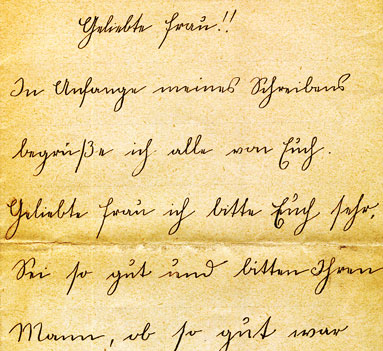 Geliebte Frau!!
In Anfange meines Schreibens
begrüße ich alle von Euch.
Geliebte Frau ich bitte Euch sehr,
Sei so gut und bitten Ihren
Mann, ob so gut war